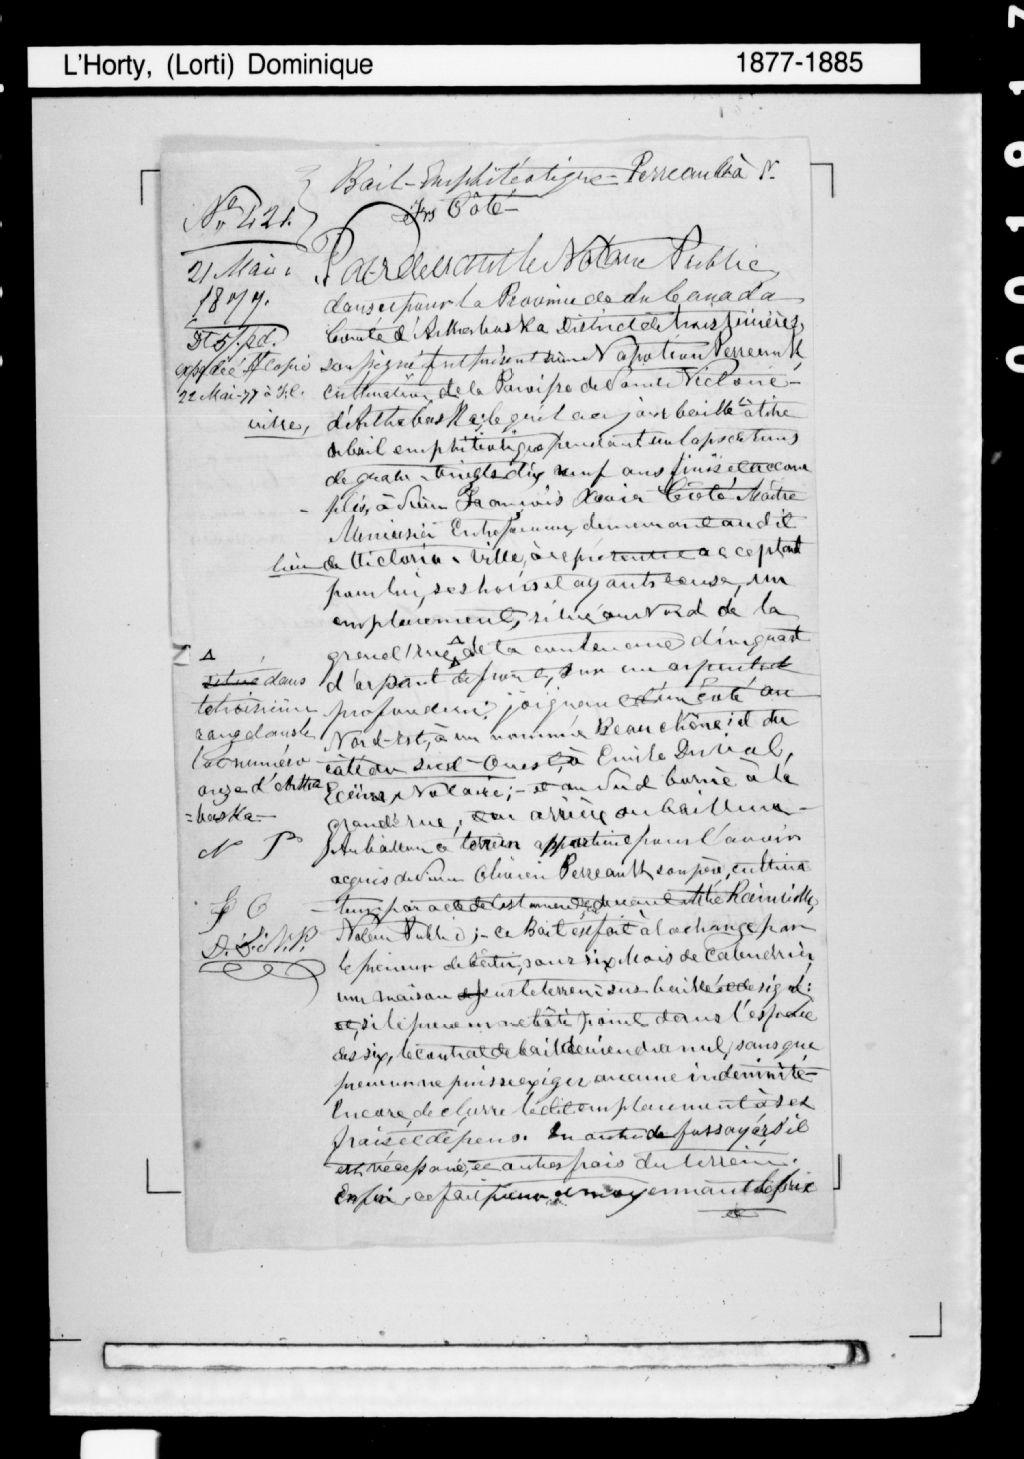 L'Horty, (Lorti) Dominique 1877-1885
Bail-Emphitéotique- Perreault à N.
Frs Côté-
No 421.
21 Mai
1877.
expédié copie
22 Mai-77 à
Par devant le Notaire Public
dans et pour la Province de du Canada
Comté d'Arthabaska District de trois rivières,
soussigné fut présent sieur Napoléon Perreault
cultivateur de la Paroisse de Sainte Victoire-
d'Arthabaska, lequel a ce jour baillé à titre
de bail emphitéotique pendant un laps de tems
de quatre-vingts dix neuf ans finis et accom
plis, à Sieur François Xavier Côté Maître
Menuisier Entrepreneur, demeurant au dit
lieu de Victoria-ville, à ce présent et acceptant
pour lui, ses hoirs et ayants cause, un
emplacement, situé au Nord de la
grand'rue, de la contenance d'un quart
d'arpent de front, sur un arpent de
profondeur; joignant d'un côté au
Nord-Est, à un nommé Beauchêne; et du
côté du Sud-Ouest, à Emile Duval,
Ecuier, Notaire;- et au Sud borné à la
grand'rue, en arrière au bailleur-
Δ
situé dans
le troisième
rang dans le
lot numéro
onze d'Artha
=baska-
N P
F C
D. L. N.P.
Au bailleur ce terrein appartient pour l'avoir
acquis de Sieur Olivier Perreault, son père, cultiva
teur, par acte de testament devant
Notaire Public;- ce Bail est fait à la charge par
le preneur de bâtir, sous six Mois de Calendrier,
une maison sur le terrein sus baillé et désigné:
et, si le preneur ne bâtit point dans l'espace
des six, le contrat de bail deviendra nul, sans que
preneur ne puisse exiger aucune indemnité-
Encore, de clorre le dit emplacement à ses
frais et dépens. En outre de fossoyer s'il
est nécessaire, et autres frais du terrein.
Enfin, ce fait pour et moyennant le prix